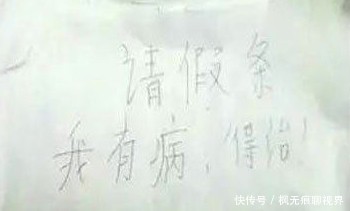 请假条
我有病，得治！
快传号 / 枫无痕聊视界